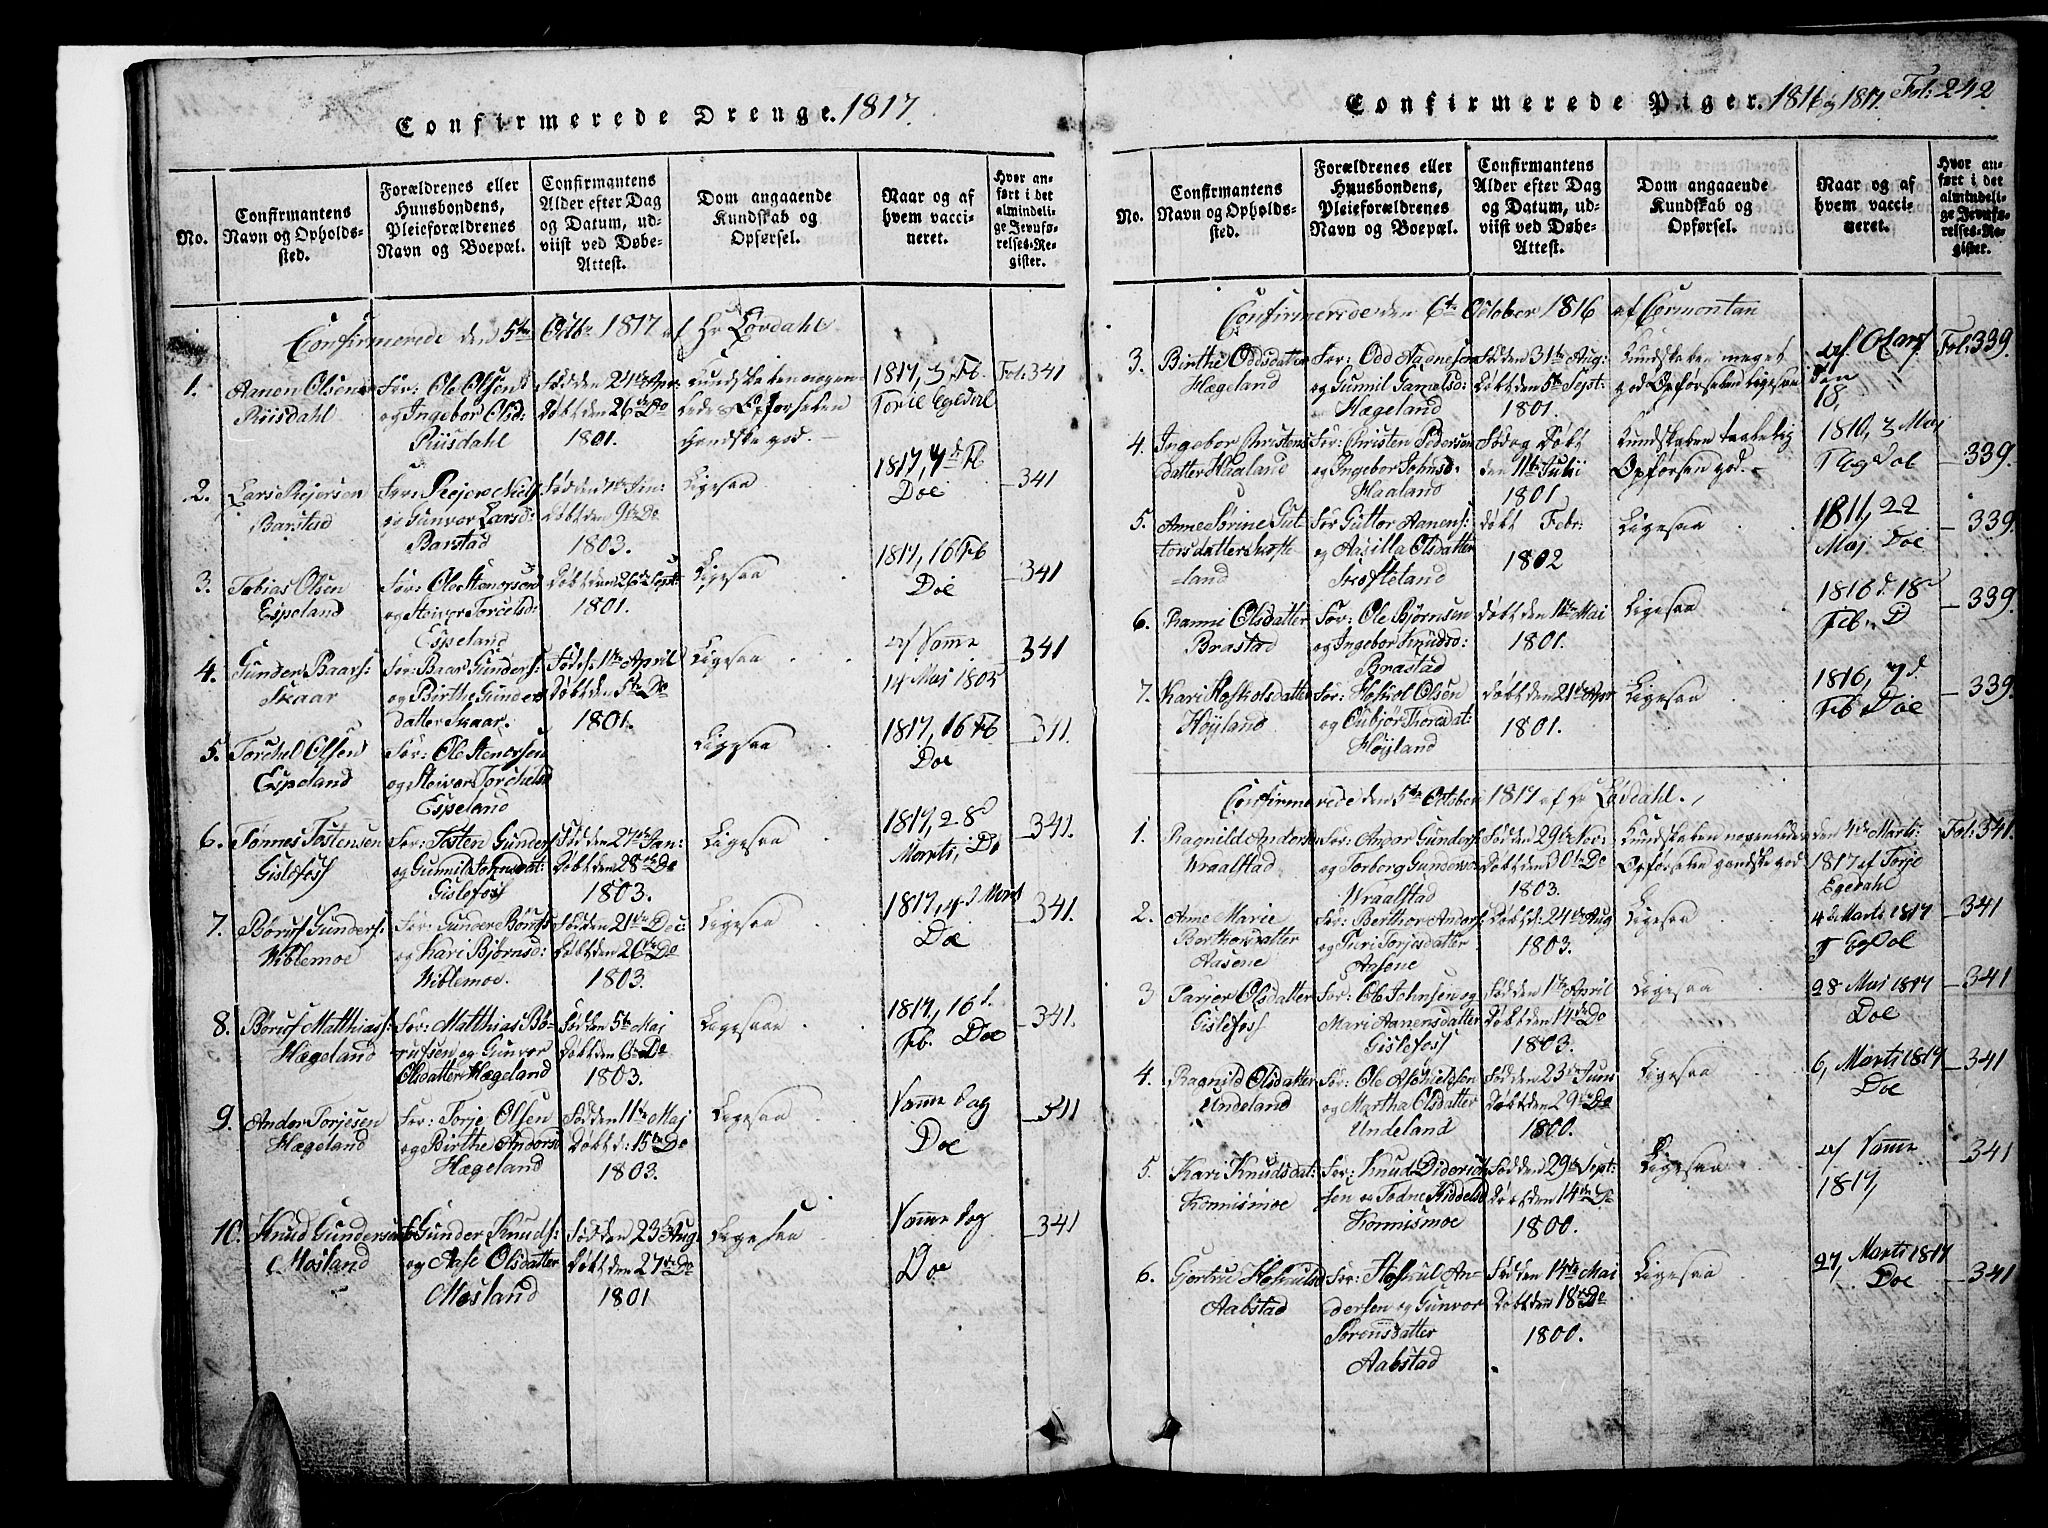 Confirmerede Drenge. 1817.
No.
Confirmantens
Navn og Opholds-
sted.
Forældrenes eller
Huusbondens,
Pleieforældrenes
Navn og Boepæl.
Confirmantens
Alder efter Dag
og Datum, ud-
viist ved Døbe-
Attest.
Dom angaaende
Kundskab og
Opførsel.
Naar og af
hvem vacci-
neret.
Hvor an-
ført i det
almindeli-
ge Jevnfø-
relses-Re-
gister.
Confirmerede den 5te Octbr 1817 af Hr Løvdahl.
1.
Aanon Olsen
Riisdahl
For: Ole Olsen
og Ingebor Olsd:
Riisdahl
Fød den 24de Apr
Døbt den 26de Do
1801.
Kundskaben nogen-
lede & Opførselen
Gandske god.
1817, 3 Fb.
Torie Egedal
Fol: 341
2.
Lars Reiersen
Barstad
For: Reier Niels
og Gunvor Larsd:
Barstad
Døbt den 9de Do
1803.
Ligesaa
1817, 7de Fb
Doe
341
3.
Tobias Olsen
Espeland
For: Ole Stenersen
og Steinvor Torcelsd:
Espeland
Døbt den 26de Sept:
1801.
Ligesaa
1817, 16 Fb
Doe
341
4.
Gunder Baars:
Skaar
For: Baar Gunders:
og Birthe Gunders
datter Skaar.
Død d: 1te April
Døbt den 5te Do
1801.
Ligesaa
af Samme
14 Mai 1805
341
5.
Torchel Olsen
Espeland
For: Ole Stenersen
og Steivor Torchelsd
Espeland
Ligesaa
1817, 16 Fb
Doe
341.
6.
Tønnes Tostensen
Gislefoss
For: Tosten Gunder
og Gunnil Johnsdat:
Gislefoss
Fød den 27de Jan:
Døbt den 28de Do
1803.
Ligesaa
1817, 28
Marti, Do
341.
7.
Børuf Gunders:
Wiblemoe
For: Gunder Børufs
og Kari Bjørnsd:
Wiblemoe.
Fød den 21de Dec:
Døbt den 26de Do
1803.
Ligesaa
1817, 4 d Mart
Doe
341.
8.
Børuf Matthias:
Hægeland
For: Matthias Bø-
rufsen og Gunvor
Olsdatter Hægeland
Fød den 5te Maj
Døbt den 6te Do
1803.
Ligesaa
1817, 16 d.
Fb. Doe
341.
9.
Ander Torjesen
Hægeland
For: Torje Olsen
og Birthe Andersd
Hægeland
Fød den 11te Maj
Døbt d: 15de Do
1803.
Ligesaa
Samme Dag
Doe
341
10.
Knud Gundersen
Mosland
Gunder Knuds:
og Aase Olsdatter
Mosland
Fød den 23 Aug:
Døbt den 27de Do
1801
Ligesaa
Samme Dag
Doe
341
Confirmerede Piger. 1816 og 1817. Fol: 242
No.
Confirmantens
Navn og Opholds-
sted.
Forældrenes eller
Huusbondens,
Pleieforældrenes
Navn og Boepæl.
Confirmantens
Alder efter Dag
og Datum, ud-
viist ved Døbe-
Attest.
Dom angaaende
Kundskab og
Opførsel.
Naar og af
hvem vacci-
neret.
Hvor an-
ført i det
almindeli-
ge Jevnfø-
relses-Re-
gister.
Confirmerede den 6te October 1816 af Cormontan
3.
Birthe Oddsdatter
Hægeland
For: Odd Aadnesen
og Gunnil Gamelsd:
Hægeland
Fød den 31te Aug:
Døbt den 5te Sept:
1801.
Kundskaben meget
god Opførselen ligesaa
Fol: 339.
4.
Ingebor Christens
datter Haaland
For: Christen Pedersen
og Ingebor Johnsd:
Haaland
Fød og Døbt
den 11te Julii
1801.
Kundskaben taalelig
Opførsen god.
1810, 3 Maj
T Egdal
339.
5.
Anne Sørine Gut
torsdatter Skofte
land
For: Guttor Aanens:
og Assilla Olsdatter
Skofteland
Døbt Febr:
1802
Ligesaa
1811, 22
Maj Doe
339.
6.
Ranni Olsdatter
Brastad
For: Ole Bjørnsen
og Ingebor Knudsd:
Brastad
Døbt den 11te Mai
1801.
Ligesaa
1816 d. 18
Feb. D
339.
7.
Kari Hoskolsdatter
Høyland
For: Hoskol Olsen
og Gubjør Thoresdat:
Høyland
Døbt den 21de Apr
1801.
Ligesaa
1816, 7 d.
Feb Doe
339.
Confirmerede den 5te October 1817 af Hr Løvdahl.
1.
Ragnild Anders
Wraalstad
For: Ander Gunders:
og Torborg Gunders
Wraalstad
Fød den 29de Nov:
Døbt den 30te Do
1803.
Kundskaben nogenledes
Opførselen gandske god
den 4de Marti
1817 af Torje
Egedahl
Fol: 341.
2.
Anne Marie
Berthorsdatter
Aasene
For: Berthor Anders:
og Guri Torjesdatter
Aasene
Døbt d: 24de Aug
1803.
Ligesaa
4de Marti 1817
T Egdal
341
3
Parjer Olsdatter
Gislefoss
For: Ole Johnsen og
Mari Aanensdatter
Gislefoss
Fød den 1te April
Døbt den 14de Do
1803.
Ligesaa
28 Mai 1817
Doe
341
4.
Ragnild Olsdatter
Undeland
For: Ole Aschielsen
og Martha Olsdatter
Undeland
Fød den 23de Juni
Døbt den 29de Do
1800.
Ligesaa
6, Marti 1817
Doe
341
5.
Kari Knudsdat:
Konnismoe
For: Knud Diderich
sen og Todne Kiddelsd
Konnismoe
Fød den 29de Sept:
Døbt den 14de Do
1800.
Ligesaa
af Samme
1817,
341
6.
Gjertru Hoskulsd
Aabstad
For: Hoskul An-
dersen og Gunvor
Sørensdatter
Aabstad
Fød den 14de Mai
Døbt den 18de Do
1800.
Ligesaa
27, Marti 1817
Doe
341